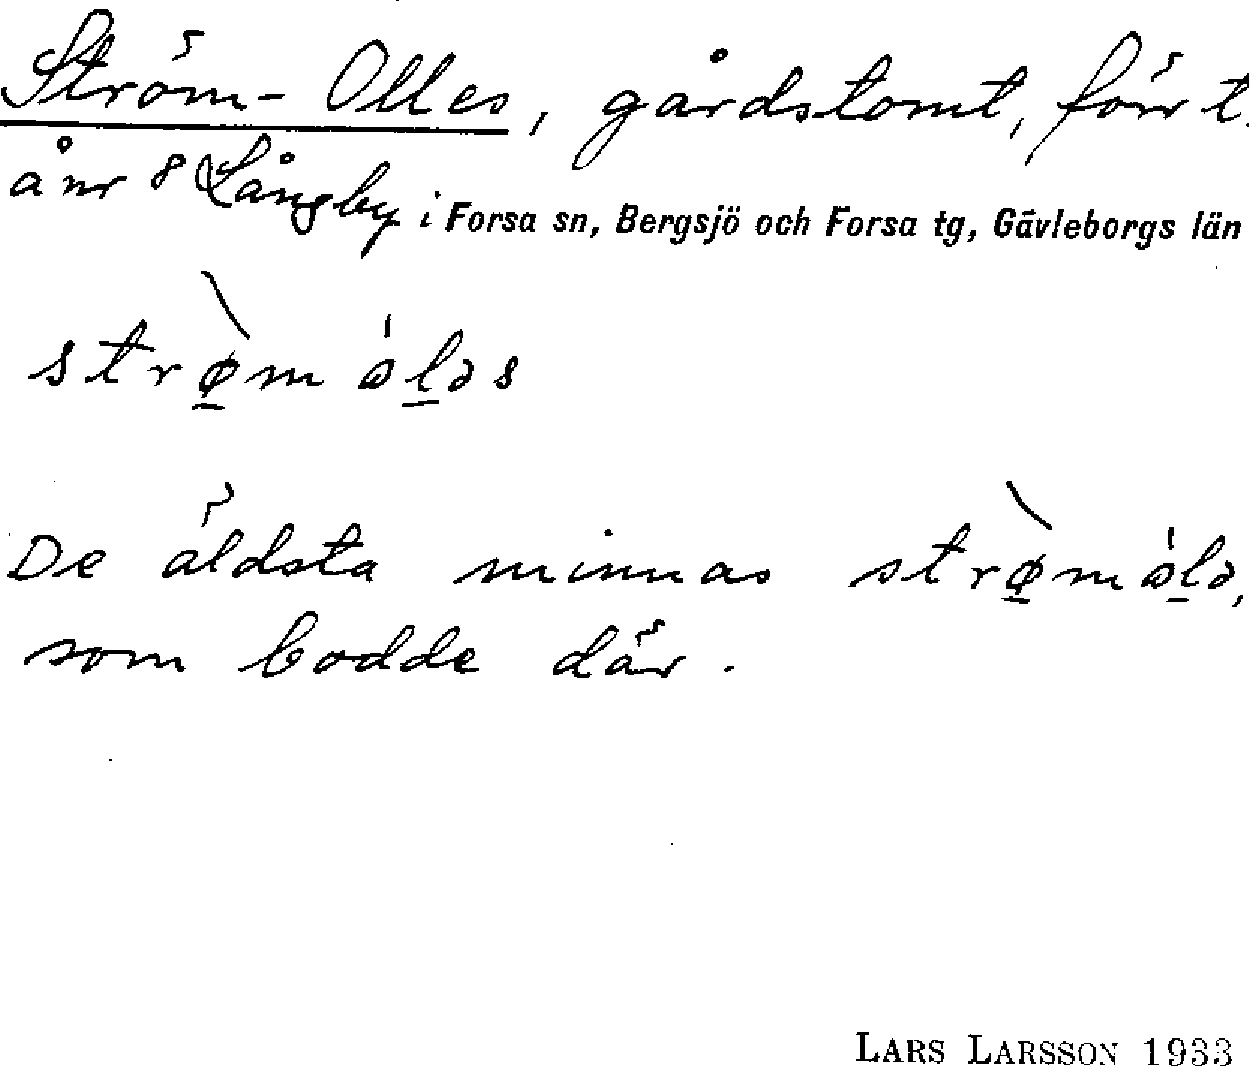 Ström-Olles, gårdstomt, förr t.
å nr 8 Långby i Forsa sn, Bergsjö och Forsa tg, Gävleborgs län
strø̱̀m ó̵ḻəs
De äldsta minnas strø̱̀mó̵ḻə,
som bodde där.
LARS LARSSON 1933